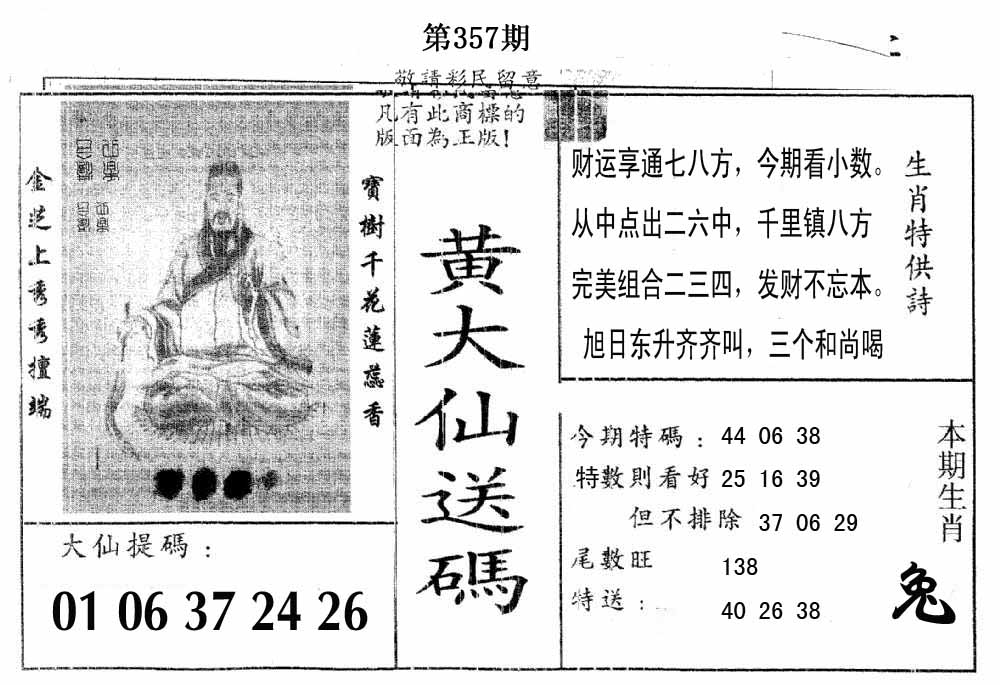 第357期
敬請彩民留意
凡有此商標的
版面為正版！
金芝上秀秀擅端
寶樹千花蓮蕊香
黄大仙送碼
财运享通七八方，今期看小数。
从中点出二六中，千里镇八方
完美组合二三四，发财不忘本。
旭日东升齐齐叫，三个和尚喝
生肖特供詩
大仙提碼：
01 06 37 24 26
今期特碼：44 06 38
特數則看好 25 16 39
但不排除 37 06 29
尾數旺 138
特送： 40 26 38
本期生肖
兔